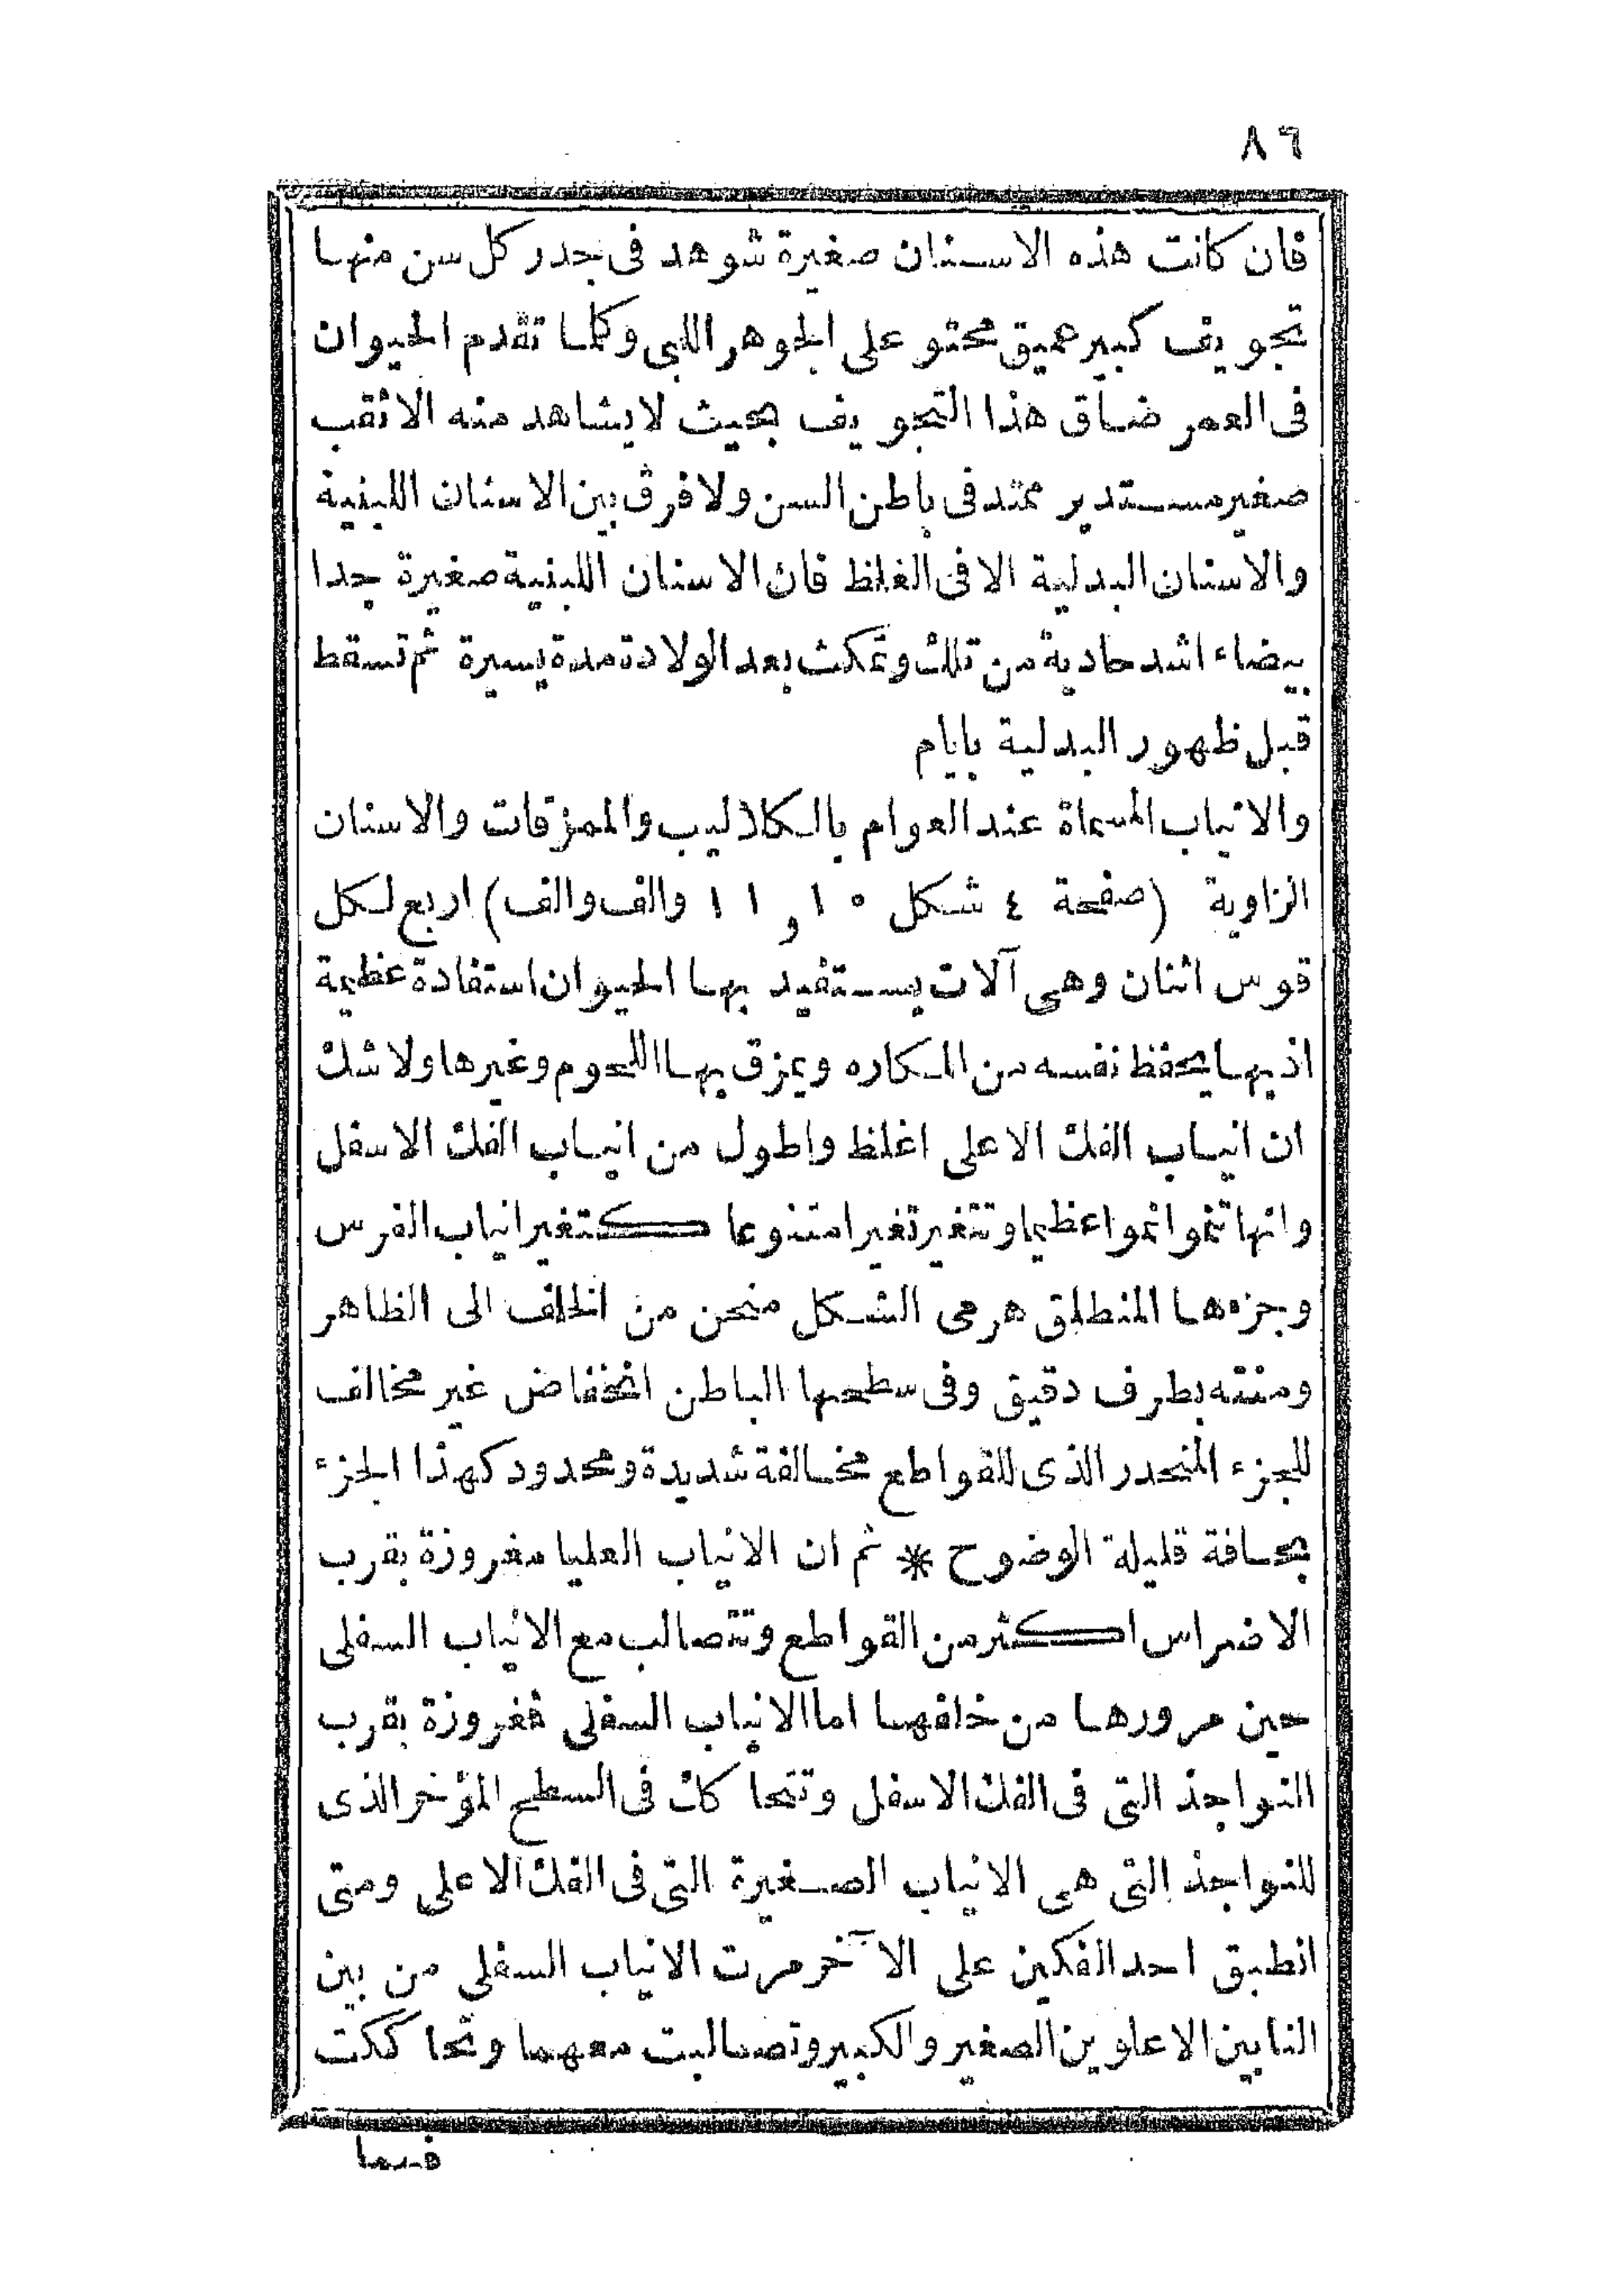 ٨٦
فان كانت هذه الاسنان صغيرة شوهد فى جدر كل سن منها
تجويف كبير عميق محتو على الجوهر اللبى وكلما تقدم الحيوان
فى العمر ضاق هذا التجويف بحيث لا يشاهد منه الا ثقب
صغير مستدير ممتد فى باطن السن ولا فرق بين الاسنان اللبنية
والاسنان البدلية الا فى الغلظ فان الاسنان اللبنية صغيرة جدا
بيضاء اشد حادية من تلك وتمكث بعد الولادة مدة يسيرة ثم تسقط
قبل ظهور البدلية بايام
والانياب المسماة عند العوام بالكلاليب والممزقات والاسنان
الزاوية (صفحة ٤ شكل ١٠ و ١١ والف والف) اربع لكل
قوس اثنان وهى آلات يستفيد بها الحيوان استفادة عظيمة
اذ بها يحفظ نفسه من المكاره ويمزق بها اللحوم وغيرها ولا شك
ان انياب الفك الاعلى اغلظ واطول من انياب الفك الاسفل
وانها تنمو انموا عظيما وتتغير تغيرا متنوعا كتغير انياب الفرس
وجزءها المنطلق هرمى الشكل منحن من الخلف الى الظاهر
ومنته بطرف دقيق وفى سطحها الباطن انخفاض غير مخالف
للجزء المنحدر الذى للقواطع مخالفة شديدة ومحدود كهذا الجزء
بحافة قليلة الوضوح * ثم ان الانياب العليا مغروزة بقرب
الاضراس اكثر من القواطع وتتصالب مع الانياب السفلى
حين مرورها من خلفها اما الانياب السفلى فغروزة بقرب
النواجذ التى فى الفك الاسفل وتتحاكك فى السطح المؤخر الذى
للنواجذ التى هى الانياب الصغيرة التى فى الفك الاعلى ومتى
انطبق احد الفكين على الآخر مرت الانياب السفلى من بين
النابين الاعلوين الصغير والكبير وتصالبت معهما وتحاككت
فيما